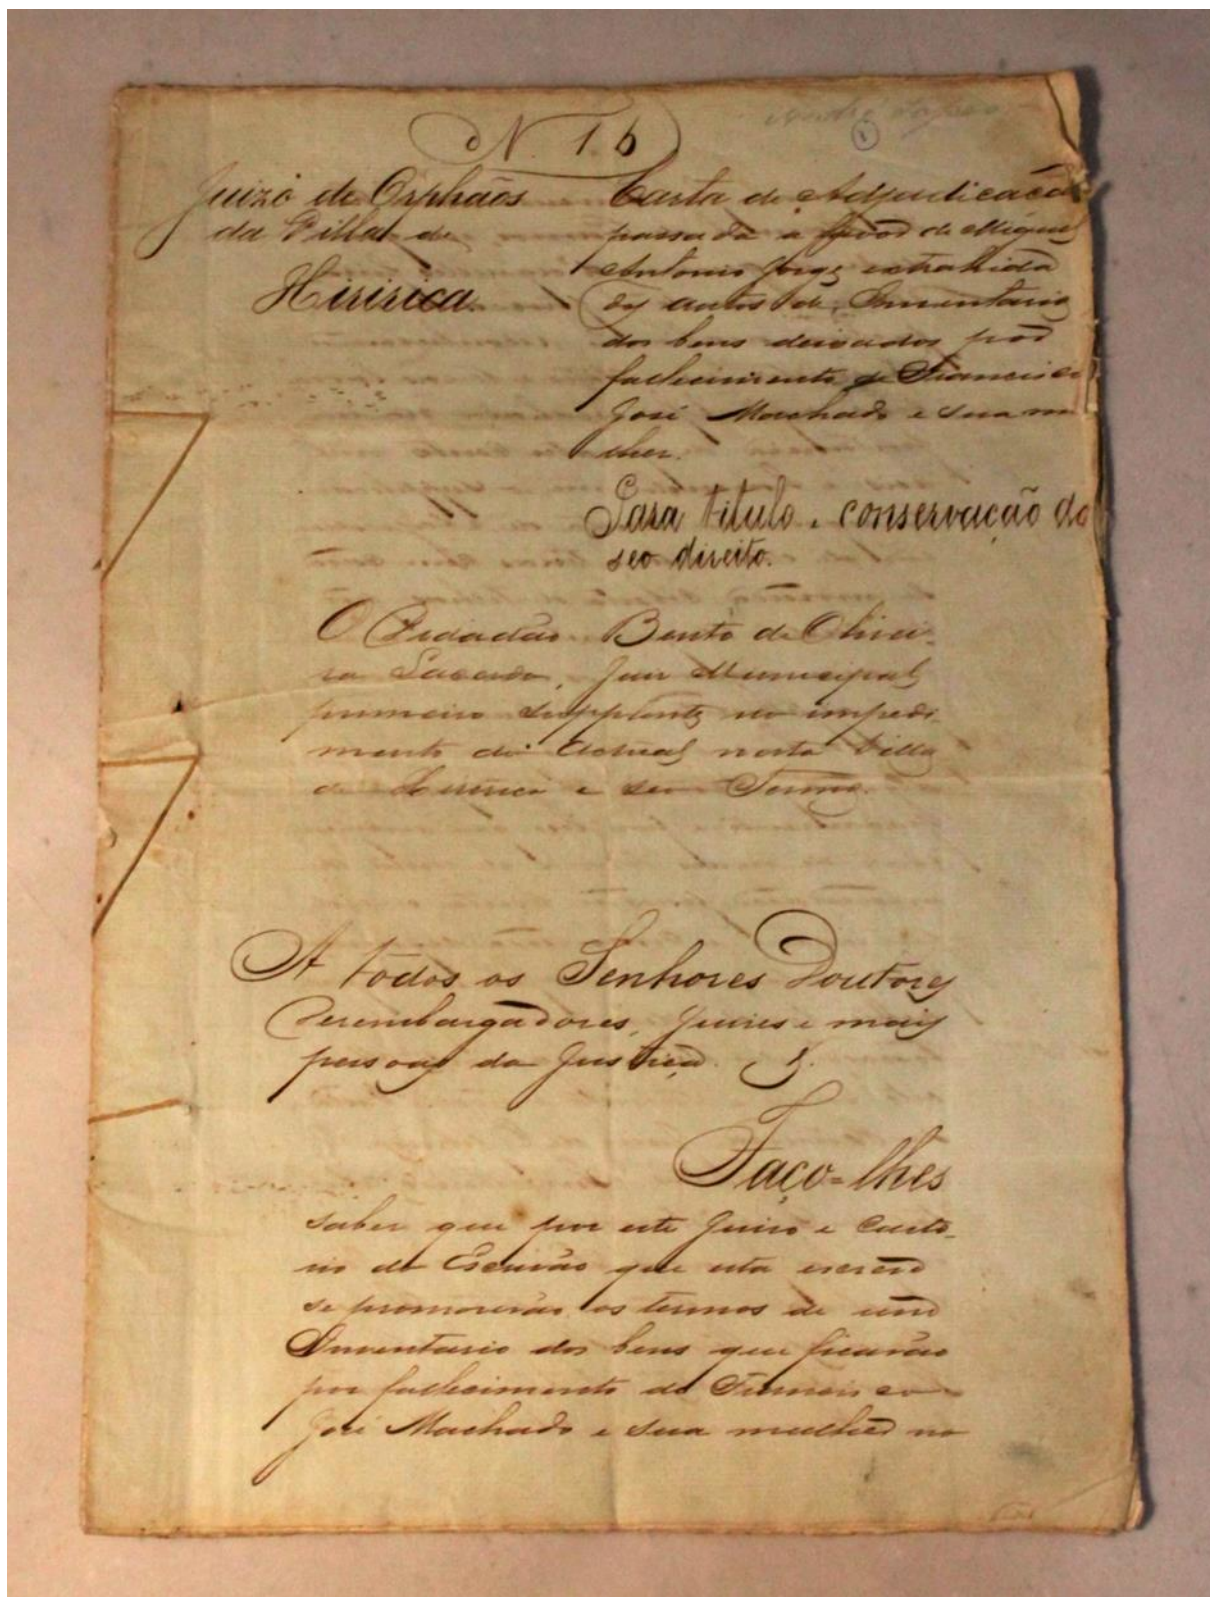 N. 16
Juizo de Orphãos
da Villa de
Xiririca.
Carta de Adjudicação
passada a favor de Miguel
Antonio Jorge extrahida
dos autos de Inventario
dos bens deixados por
fallecimento de Francisco
José Machado e sua mu
lher.
Para titulo e conservação do
seo direito.
O Cidadão Bento de Olivei-
ra , Juiz Municipal
primeiro supplente no impedi
mento do actual nesta Villa
de Xiririca e seu Termo.
A todos os Senhores Doutores
Desembargadores, Juizes e mais
pessoas da Justiça.
Faço-lhes
saber que por este Juizo e Carto-
rio do Escrivão que esta escreve
se promoverão os termos de um
Inventario dos bens que ficarão
por fallecimento de Francisco
José Machado e sua mulher no